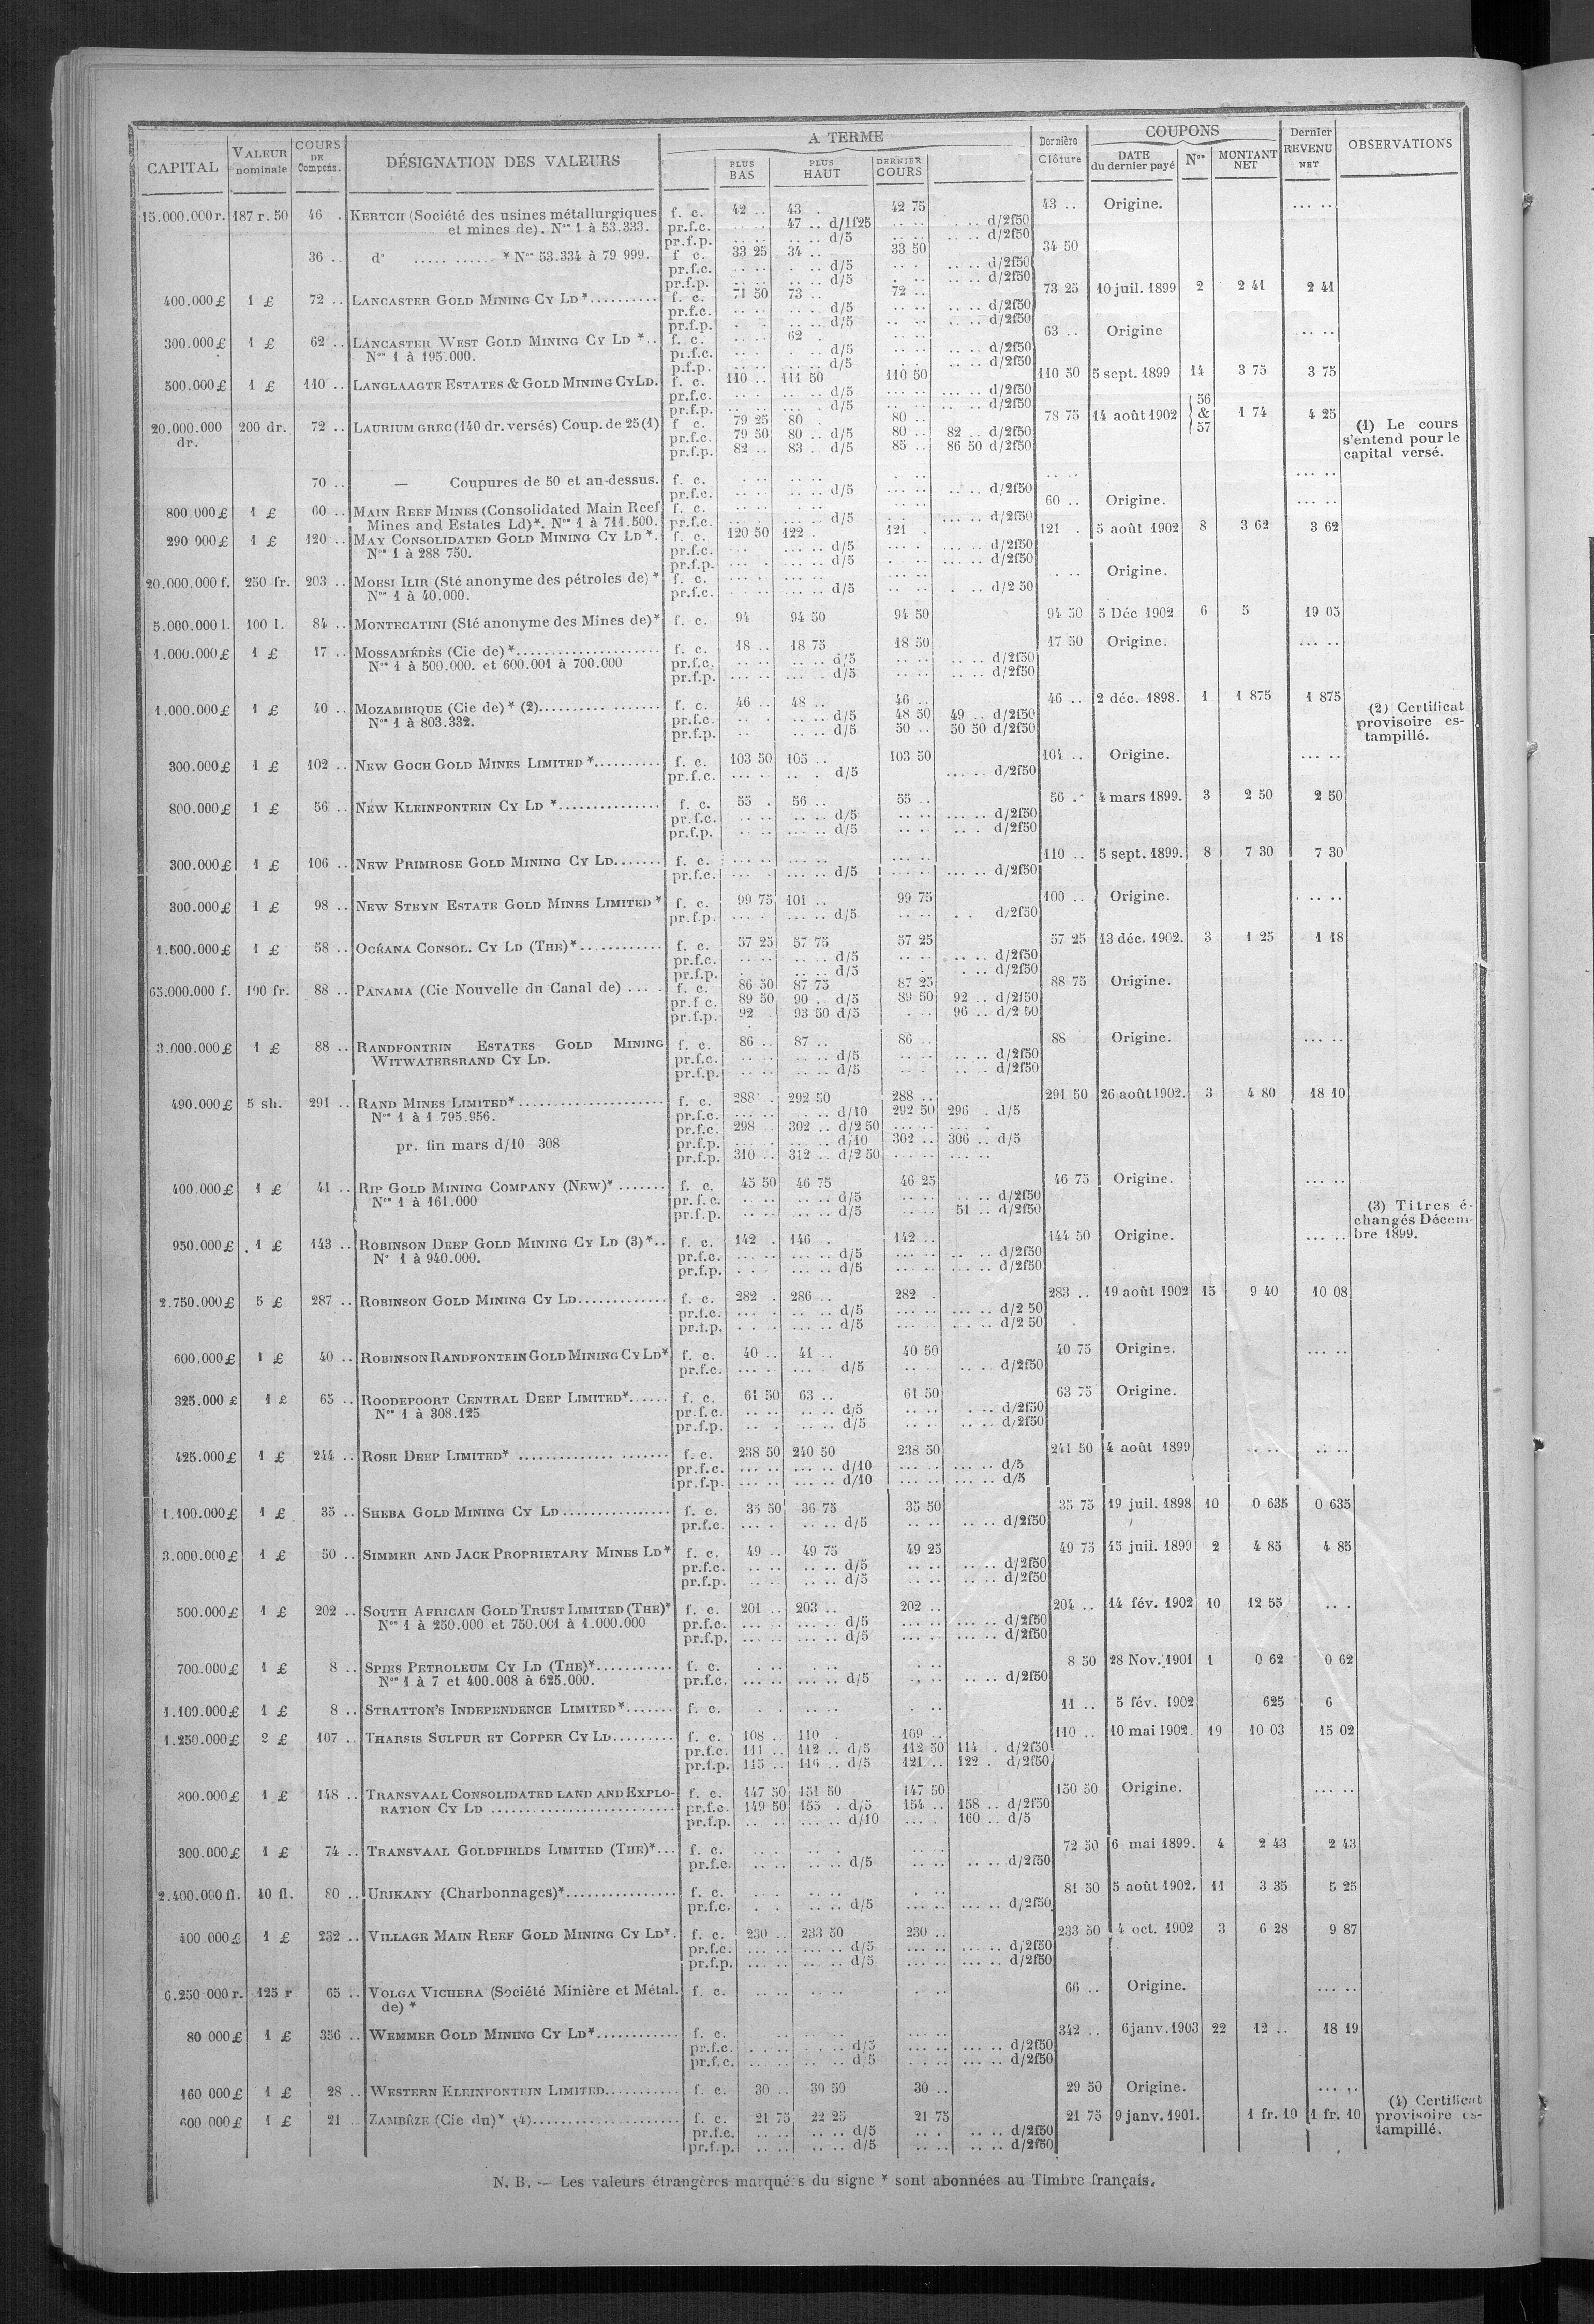 A TERME
COUPONS
CAPITAL VALEUR nominale COURS DE Compens. DÉSIGNATION DES VALEURS PLUS BAS PLUS HAUT DERNIER COURS Dernière Clôture DATE du dernier payé Nos MONTANT NET Dernier REVENU NET OBSERVATIONS
15.000.000 r. 187 r. 50 46 . KERTCH (Société des usines métallurgiques f. c. 42 .. 43 . 42 75 43 .. Origine. .... ..
et mines de). Nos 1 à 53.333. pr.f.c. .. . 47 .. d/1f25 .. .. .. .. d/2f50
pr.f.p. .. .. .. .. d/5 .. .. .. .. d/2f50
36 .. do ..... ...... * Nos 53.334 à 79 999. f c. 33 25 34 .. 33 50 34 50
pr.f.c. .. .. . .. d/5 .. . .. .. d/2f50
pr.f.p. .. .. .. .. d/5 .. .. .. .. d/2f50
400.000 £ 1 £ 72 .. LANCASTER GOLD MINING CY LD *.......... f. c. 71 50 73 .. 72 .. 73 25 10 juil. 1899 2 2 41 2 41
pr.f.c. .. .. .. .. d/5 .. .. .. .. d/2f50
pr.f.p. . . .. .. d/5 .. .. .. .. d/2f50
300.000 £ 1 £ 62 .. LANCASTER WEST GOLD MINING CY LD *.. f. c. .. .. 62 . .. .. 63 .. Origine .... ..
Nos 1 à 195.000. pr.f.c. .. .. . .. d/5 .. .. .. .. d/2f50
p.f.p. .. .. .. .. d/5 .. .. .. .. d/2f50
500.000 £ 1 £ 110 .. LANGLAAGTE ESTATES & GOLD MINING CY LD. f. c. 110 .. 111 50 110 50 110 50 5 sept. 1899 14 3 75 3 75
pr.f.c. .. .. .. .. d/5 .. .. .. .. d/2f50
pr.f.p. .. .. .. . d/5 .. .. .. .. d/2f50
20.000.000 dr. 200 dr. 72 .. LAURIUM GREC (140 dr. versés) Coup. de 25 (1) f c. 79 25 80 . 80 .. 78 75 14 août 1902 56 & 57 1 74 4 25 (1) Le cours
pr.f.c. 79 50 80 .. d/5 80 .. 82 .. d/2f50 s'entend pour le
pr.f.p. 82 .. 83 .. d/5 85 .. 86 50 d/2f50 capital versé.
70 .. — Coupures de 50 et au-dessus. f. c. . .. .. .. . .. .. .. .... ..
pr.f.c. .. . .. .. d/5 ... .. .. .. d/2f50
800 000 £ 1 £ 60 .. MAIN REEF MINES (Consolidated Main Reef f. c. .. .. .. .. .. .. 60 .. Origine. .... ..
Mines and Estates Ld)*. Nos 1 à 711.500. pr.f.c. ... . .. .. d/5 .... .. .... .. d/2f50
290 000 £ 1 £ 120 .. MAY CONSOLIDATED GOLD MINING CY LD *. f. c. 120 50 122 . 121 . 121 . 5 août 1902 8 3 62 3 62
Nos 1 à 288 750. pr.f.c. ... .... .. d/5 ... . .... .. d/2f50
pr.f.p. .... . .... .. d/5 .. .. .. .. d/2f50
20.000.000 f. 250 fr. 203 .. MOESI ILIR (Sté anonyme des pétroles de) * f. c. .... .. .... .. . .. . .. Origine.
Nos 1 à 40.000. pr.f.c. .. .. .. .. d/5 .. .. . .. d/2 50
5.000.000 l. 100 l. 84 .. MONTECATINI (Sté anonyme des Mines de)* f. c. 94 94 50 94 50 94 50 5 Déc 1902 6 5 19 05
1.000.000 £ 1 £ 17 .. MOSSAMÉDÈS (Cie de) *..................... f. c. 18 .. 18 75 18 50 17 50 Origine. .... ..
Nos 1 à 500.000. et 600.001 à 700.000 pr.f.c. .. .. .. .. d/5 .. .. .. .. d/2f50
pr.f.p. .... .. .... . d/5 .. .. .. .. d/2f50
1.000.000 £ 1 £ 40 .. MOZAMBIQUE (Cie de) * (2)................. f. c. 46 .. 48 .. 46 .. 46 .. 2 déc. 1898. 1 1 875 1 875 (2) Certificat
Nos 1 à 803.332. pr.f.c. .. . .. .. d/5 48 50 49 .. d/2f50 provisoire es-
pr.f.p. .. .. .. d/5 50 .. 50 50 d/2f50 tampillé.
300.000 £ 1 £ 102 .. NEW GOCH GOLD MINES LIMITED *.......... f. c. 103 50 105 .. 103 50 104 .. Origine. .... ..
pr.f.c. .... .. .. . d/5 .... .. d/2f50
800.000 £ 1 £ 56 .. NEW KLEINFONTEIN CY LD *............... f. c. 55 . 56 .. 55 .. 56 .. 4 mars 1899. 3 2 50 2 50
pr.f.c. .. .. .... .. d/5 .. .. .... .. d/2f50
pr.f.p. .. .. .... .. d/5 .. .. .. . d/2f50
300.000 £ 1 £ 106 .. NEW PRIMROSE GOLD MINING CY LD....... f. c. .... .. .... .. .... .. 110 .. 5 sept. 1899. 8 7 30 7 30
pr.f.c. .... . .... .. d/5 .... .. .... .. d/2f50
300.000 £ 1 £ 98 .. NEW STEYN ESTATE GOLD MINES LIMITED * f. c. 99 75 101 .. 99 75 100 .. Origine. . .. ..
pr.f.p. .... . .... .. d/5 .. .. . . d/2f50
1.500.000 £ 1 £ 58 .. OCÉANA CONSOL. CY LD (THE)*............ f. c. 57 25 57 75 57 25 57 25 13 déc. 1902. 3 1 25 1 18
pr.f.c. .. .. .. .. d/5 .. .. .. .. d/2f50
pr.f.p. . .. .. d/5 .. . .. d/2f50
65.000.000 f. 100 fr. 88 .. PANAMA (Cie Nouvelle du Canal de) .... . f. c. 86 50 87 75 87 25 88 75 Origine.
pr.f c. 89 50 90 .. d/5 89 50 92 .. d/2f50
pr.f.p. 92 . 93 50 d/5 . . 96 .. d/2 50
3.000.000 £ 1 £ 88 .. RANDFONTEIN ESTATES GOLD MINING f. c. 86 .. 87 .. 86 .. 88 Origine. .... ..
WITWATERSRAND CY LD. pr.f.c. .. .. .. .. d/5 .. .. .. .. d/2f50
pr.f.p. .. .. .. .. d/5 .. .. .. .. d/2f50
490.000 £ 5 sh. 291 .. RAND MINES LIMITED*..................... f. c. 288 .. 292 50 288 .. 291 50 26 août 1902. 3 4 80 18 10
Nos 1 à 1.795.956. pr.f.c. .... .. .. .. d/10 292 50 296 . d/5
pr.f.c. 298 . 302 .. d/2 50 .... .. .... .
pr. fin mars d/10 308 pr.f.p. .... . .. .. d/10 302 .. 306 .. d/5
pr.f.p. 310 .. 312 .. d/2 50 .... .. .... ..
400.000 £ 1 £ 41 .. RIP GOLD MINING COMPANY (NEW)* ....... f. c. 45 50 46 75 46 25 46 75 Origine. .... ..
Nos 1 à 161.000 pr.f.c. . .. .. .. d/5 .. .. .. .. d/2f50 (3) Titres é-
pr.f.p. .. .. .. .. d/5 .. .. 51 .. d/2f50 changés Décem-
950.000 £ 1 £ 143 .. ROBINSON DEEP GOLD MINING CY LD (3)*.. f. c. 142 . 146 . 142 .. 144 50 Origine. .... .. bre 1899.
No 1 à 940.000. pr.f.c. .. .. .. .. d/5 .... .. .. .. d/2f50
pr.f.p. . . . .. .. d/5 .... .. .... .. d/2f50
2.750.000 £ 5 £ 287 .. ROBINSON GOLD MINING CY LD............. f. c. 282 . 286 .. 282 . 283 .. 19 août 1902 15 9 40 10 08
pr.f.c. .... .. .. .. d/5 .... .. .... .. d/2 50
pr.f.p. .. . .. .. d/5 .... .. .. .. d/2 50
600.000 £ 1 £ 40 .. ROBINSON RANDFONTEIN GOLD MINING CY LD* f. c. 40 .. 41 .. 40 50 40 75 Origine. .... ..
pr.f.c. .... .. .. .. d/5 .. .. .. .. d/2f50
325.000 £ 1 £ 65 .. ROODEPOORT CENTRAL DEEP LIMITED*...... f. c. 61 50 63 .. 61 50 63 75 Origine.
Nos 1 à 308.125 pr.f.c. .. .. .. .. d/5 .. .. . .. d/2f50
pr.f.p. .. . .. .. d/5 .. .. .. .. d/2f50
425.000 £ 1 £ 244 .. ROSE DEEP LIMITED* .............. ....... f. c. 238 50 240 50 238 50 241 50 4 août 1899 .. .. .. ..
pr.f.c. .... .. .... .. d/10 .... .. .... .. d/5
pr.f.p. .... .. .... .. d/10 .... .. .... .. d/5
1.100.000 £ 1 £ 35 .. SHEBA GOLD MINING CY LD ................ f. c. 35 50 36 75 35 50 35 75 19 juil. 1898 10 0 635 0 635
pr.f.c. .... . .. .. d/5 .. .. .. .. d/2f50
3.000.000 £ 1 £ 50 .. SIMMER AND JACK PROPRIETARY MINES LD* f. c. 49 .. 49 75 49 25 49 75 15 juil. 1899 2 4 85 4 85
pr.f.c. .. .. .. .. d/5 .. .. .. .. d/2f50
pr.f.p. .. .. .. .. d/5 .. .. .. .. d/2f50
500.000 £ 1 £ 202 .. SOUTH AFRICAN GOLD TRUST LIMITED (THE)* f. c. 201 .. 203 .. 202 .. 204 .. 14 fév. 1902 10 12 55 .. .
Nos 1 à 250.000 et 750.001 à 1.000.000 pr.f.c. .... .. .... .. d/5 .... .. .... .. d/2f50
pr.f.p. .... .. .... .. d/5 .... .. .... .. d/2f50
700.000 £ 1 £ 8 .. SPIES PETROLEUM CY LD (THE)*........... f. c. . .. .. .. . .. 8 50 28 Nov. 1901 1 0 62 0 62
Nos 1 à 7 et 400.008 à 625.000. pr.f.c. .... .. .... .. d/5 .. .. .. .. d/2f50
1.100.000 £ 1 £ 8 .. STRATTON'S INDEPENDENCE LIMITED*....... f. c. . . .. .. . .. 11 .. 5 fév. 1902 625 6
1.250.000 £ 2 £ 107 .. THARSIS SULFUR ET COPPER CY LD......... f. c. 108 .. 110 . 109 .. 110 .. 10 mai 1902. 19 10 03 15 02
pr.f.c. 111 .. 112 .. d/5 112 50 114 . d/2f50
pr.f.p. 115 .. 116 .. d/5 121 .. 122 . d/2f50
800.000 £ 1 £ 148 .. TRANSVAAL CONSOLIDATED LAND AND EXPLO- f. c. 147 50 151 50 147 50 150 50 Origine. .... ..
RATION CY LD ............................ pr.f.c. 149 50 155 . d/5 154 .. 158 .. d/2f50
pr.f.p. .. .. .... .. d/10 .... . 160 .. d/5
300.000 £ 1 £ 74 .. TRANSVAAL GOLDFIELDS LIMITED (THE)*... f. c. .. .. .. . .. . 72 50 6 mai 1899. 4 2 43 2 43
pr.f.c. .. .. .. .. d/5 .. .. .. .. d/2f50
2.400.000 fl. 40 fl. 80 .. URIKANY (Charbonnages)*................. f. c. . . .. .. . .. 81 50 5 août 1902. 11 3 35 5 25
pr.f.c. . . .. .. d/5 .... .. .... .. d/2f50
400 000 £ 1 £ 232 .. VILLAGE MAIN REEF GOLD MINING CY LD*. f. c. 230 .. 233 50 230 .. 233 50 4 oct. 1902 3 6 28 9 87
pr.f.c. .... .. .... .. d/5 .... .. .... .. d/2f50
pr.f.p. .... .. .... .. d/5 .... .. .... .. d/2f50
6.250 000 r. 125 r 65 .. VOLGA VICHERA (Société Minière et Métal. f. c. .. .. .. .. . .. 66 .. Origine. .... ..
de) *
80 000 £ 1 £ 356 .. WEMMER GOLD MINING CY LD*............ f. c. .. .. .. .. .... .. 342 .. 6 janv. 1903 22 12 .. 18 19
pr.f.c. . .. . .. .. d/5 .... .. .... .. d/2f50
pr.f.c. . .. . .. .. d/5 .... .. .... .. d/2f50
160 000 £ 1 £ 28 .. WESTERN KLEINFONTEIN LIMITED.......... f. c. 30 .. 30 50 30 .. 29 50 Origine. .... ..
600 000 £ 1 £ 21 .. ZAMBÈZE (Cie du)* (4).................... f. c. 21 75 22 25 21 75 21 75 9 janv. 1901. 1 fr. 10 1 fr. 10 (4) Certificat
pr.f.c. .. .. .. .. d/5 .. . .. .. d/2f50 provisoire es-
pr.f.p. .. .. .. .. d/5 .. .. .. .. d/2f50 tampillé.
N. B. — Les valeurs étrangères marquées du signe * sont abonnées au Timbre français.